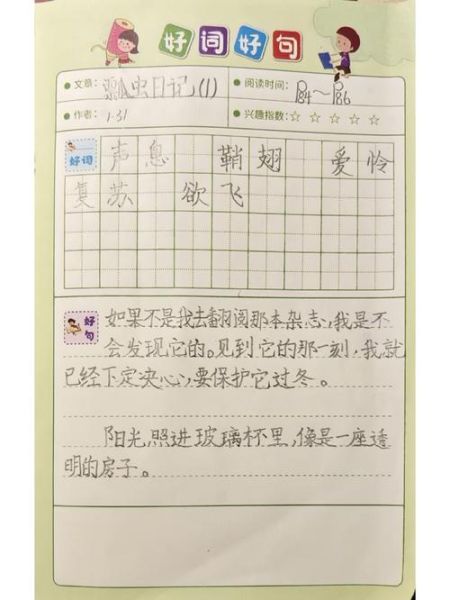 好词好句
文章: 瓢虫日记(1) 阅读时间: P84～P86
作者: 1-31 兴趣指数: ☆ ☆ ☆ ☆ ☆
好词 声息 鞘翅 爱怜
复苏 欲飞
好句 如果不是我去翻阅那本杂志,我是不
会发现它的。见到它的那一刻,我就
已经下定决心,要保护它过冬。
阳光照进玻璃杯里,像是一座透
明的房子。